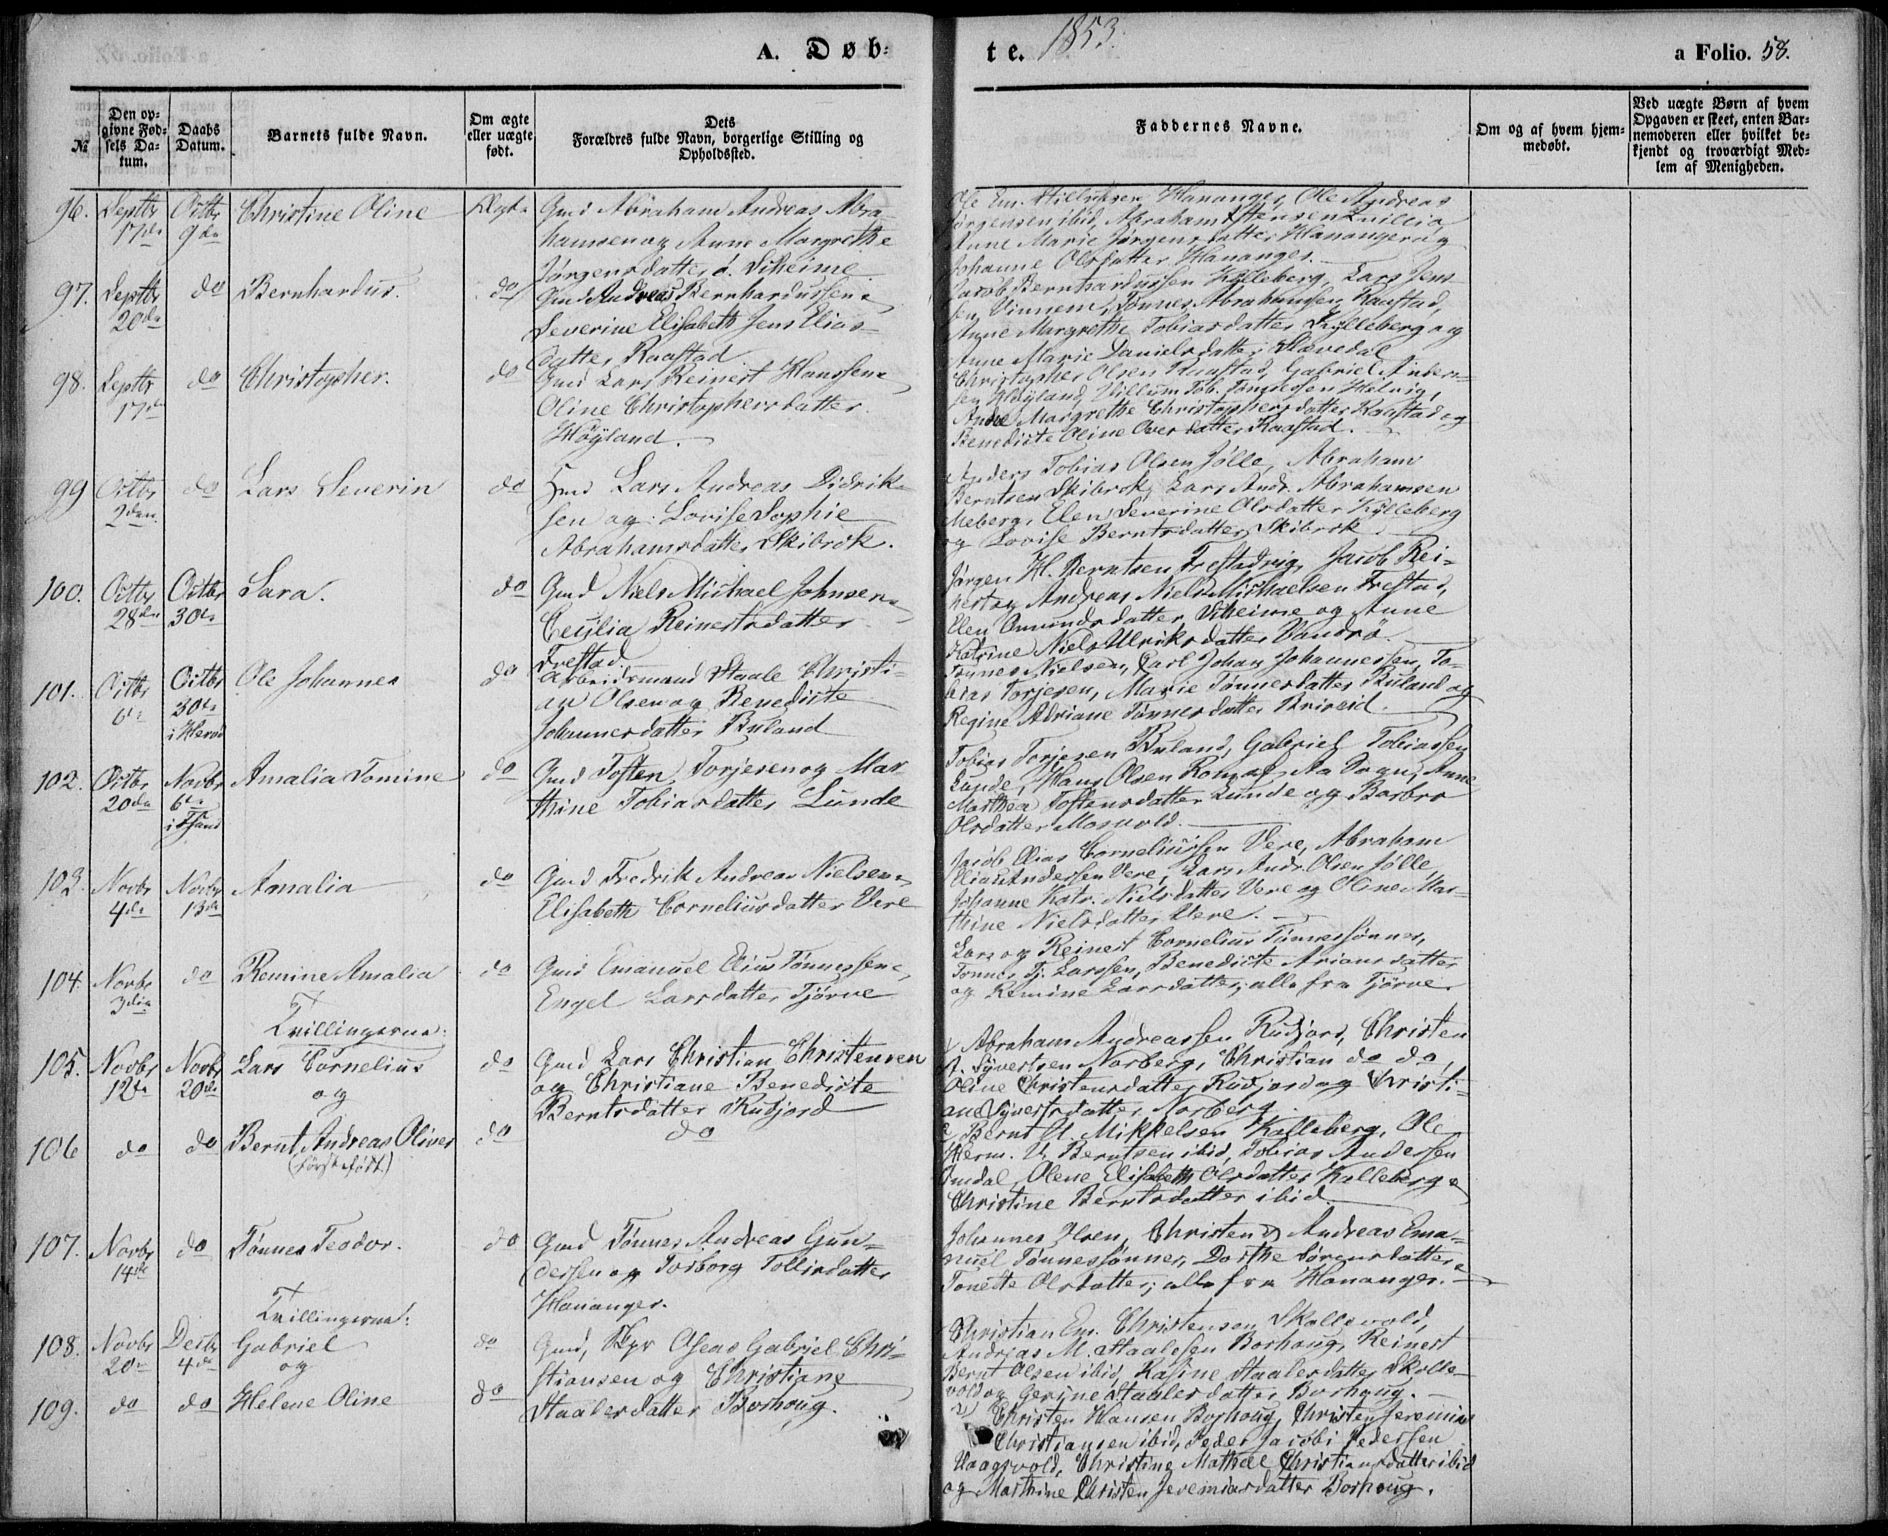 A. Døb-
te. 1853.
a Folio. 58.
№
Den op-
givne Fød-
sels Da-
tum.
Daabs
Datum.
Barnets fulde Navn.
Om ægte
eller uægte
født.
Dets
Forældres fulde Navn, borgerlige Stilling og
Opholdssted.
Faddernes Navne.
Om og af hvem hjem-
medøbt.
Ved uægte Børn af hvem
Opgaven er skeet, enten Bar-
nemoderen eller hvilket be-
kjendt og troværdigt Med-
lem af Menigheden.
96. Septbr 17de Octbr 9de Christine Oline Ægte Gmd Abraham Andreas Abra-
hamsen og Anne Margrethe
Jørgensdatter ø. Veheime
Ole Em. Hananger, Ole Andreas
Jørgensen ibid, Abraham Hansen
Anne Marie Jørgensdatter Hananger og
Johanne Olsdatter Hananger.
97. Septbr 20de do Bernhardus. do Gmd Andreas Bernhardussen &
Severine Elisabeth Jens Elias-
datter Raastad
Jacob Bernhardussen Kylleberg, Lars Jens-
sen Vinnem, Tønnes Abrahamsen Raastad,
Anne Margrethe Tobiasdatter Kylleberg og
Anne Marie Danielsdatter
98. Septbr 17de do Christopher. do Gmd Lars Reinert Hanssen &
Oline Christophersdatter
Høyland.
Christopher Olsen Raastad, Gabriel Anders-
sen Høyland, Villum Tob. Helvig,
Anne Margrethe Christophersdatter Raastad og
Benedicte Oline Ovesdatter Raastad.
99 Octbr 2den do Lars Severin do Gmd Lars Andreas Didrik-
sen og Lovise Sophie
Abrahamsdatter Skibrok.
Anders Tobias Olsen Jølle, Abraham
Berntsen Skibrok, Lars Andr. Abrahamsen
Meberg, Elen Severine Olsdatter Kylleberg
og Lovise Berntsdatter Skibrok
100. Octbr 28de Octbr 30te Sara. do Gmd Niels Michael Johnsen &
Cecilia Reinertsdatter
Frestad.
Jørgen H. Berntsen Frestadvig, Jacob Rei-
nert og Andreas Niels Michaelsen Frestad,
Elen Omundsdatter Veheime og Anne
Katrine Niels Ulriksdatter Vandrö.
101. Octbr 6te Octbr 30te i Herad Ole Johannes do Arbeidsmand Staale Christi-
an Olsen og Benedicte
Johannesdatter Buland
Tønnes Nielsen, Carl Johan Johannessen, To-
bias Torjesen, Marie Tønnesdatter Buland og
Regine Adriane Tønnesdatter Briseid.
102. Octbr 20de Novbr 6te Amalia Tomine do Gmd Tosten Torjesen og Mar-
thine Tobiasdatter Lunde
Tobias Torjesen Buland, Gabriel Tobiassen
Lunde, Hans Olsen Rom af Aa Sogn, Anne
Marthea Tostensdatter Lunde og Barbro
Olsdatter Mosvold.
103. Novbr 4de Novbr 13de Amalia do Gmd Fredrik Andreas Nielsen &
Elisabeth Corneliusdatter Vere
Jacob Elias Corneliussen Vere, Abraham
Elias Andersen Vere, Lars Andr. Olsen Jølle,
Johanne Katr. Nielsdatter Vere og Oline Mar-
thine Nielsdatter Vere.
104. Novbr 3die do Remine Amalia do Gmd Emanuel Elias Tønnessen &
Engel Larsdatter Tjørve
Lars og Reinert Cornelius Tønnessønner,
Tønnes Tj. Larssen, Benedicte Ariansdatter
og Remine Larsdatter, alle fra Tjørve.
Tvillingerne:
105. Novbr 12te Novbr 20de Lars Cornelius
og do Gmd Lars Christian Christensen
og Christiane Benedicte
Berntsdatter Rudjord
1, Abraham Andreassen Rudjord, Christen
A. Syvertsen Norberg, Christian do do,
Oline Christensdatter Rudjord og Christi-
ane Syvertsdatter Norberg
106 do do Bernt Andreas Oliver
(førstefødt) do do
2, Bernt A. Mikkelsen Kalleberg, Ole
Herm. V. Berntsen ibid, Tobias Andersen
Omdal, Olene Elisabeth Olsdatter Kalleberg &
Christine Berntsdatter ibid
107. Novbr 14de do Tønnes Teodor. do Gmd Tønnes Andreas Gun-
dersen og Torborg Tollisdatter
Hananger.
Johannes Olsen, Christen & Andreas Ema-
nuel Tønnessønner, Dorthe Sørensdatter &
Tonette Olsdatter; alle fra Hananger.
Tvillingerne:
108. Novbr 20de Decbr 4de Gabriel
og do Gmd, Skpr Oseas Gabriel Chri-
stiansen og Christiane
Staalesdatter Borhoug.
Christian Em. Christensen Skollevold,
Andreas M. Staalesen Borhoug, Reinert
Bernt Olsen ibid, Rasine Staalesdatter Skolle-
vold og Gerine Staalesdatter Borhoug.
109. do do Helene Oline do
2) Christen Hansen Borhoug, Christen Jeremias
Christiansen ibid, Peder Jacobi Pedersen
Haagsvold, Christine Mathea Christiansdatter ibid
og Marthine Christen Jeremiasdatter Borhoug.